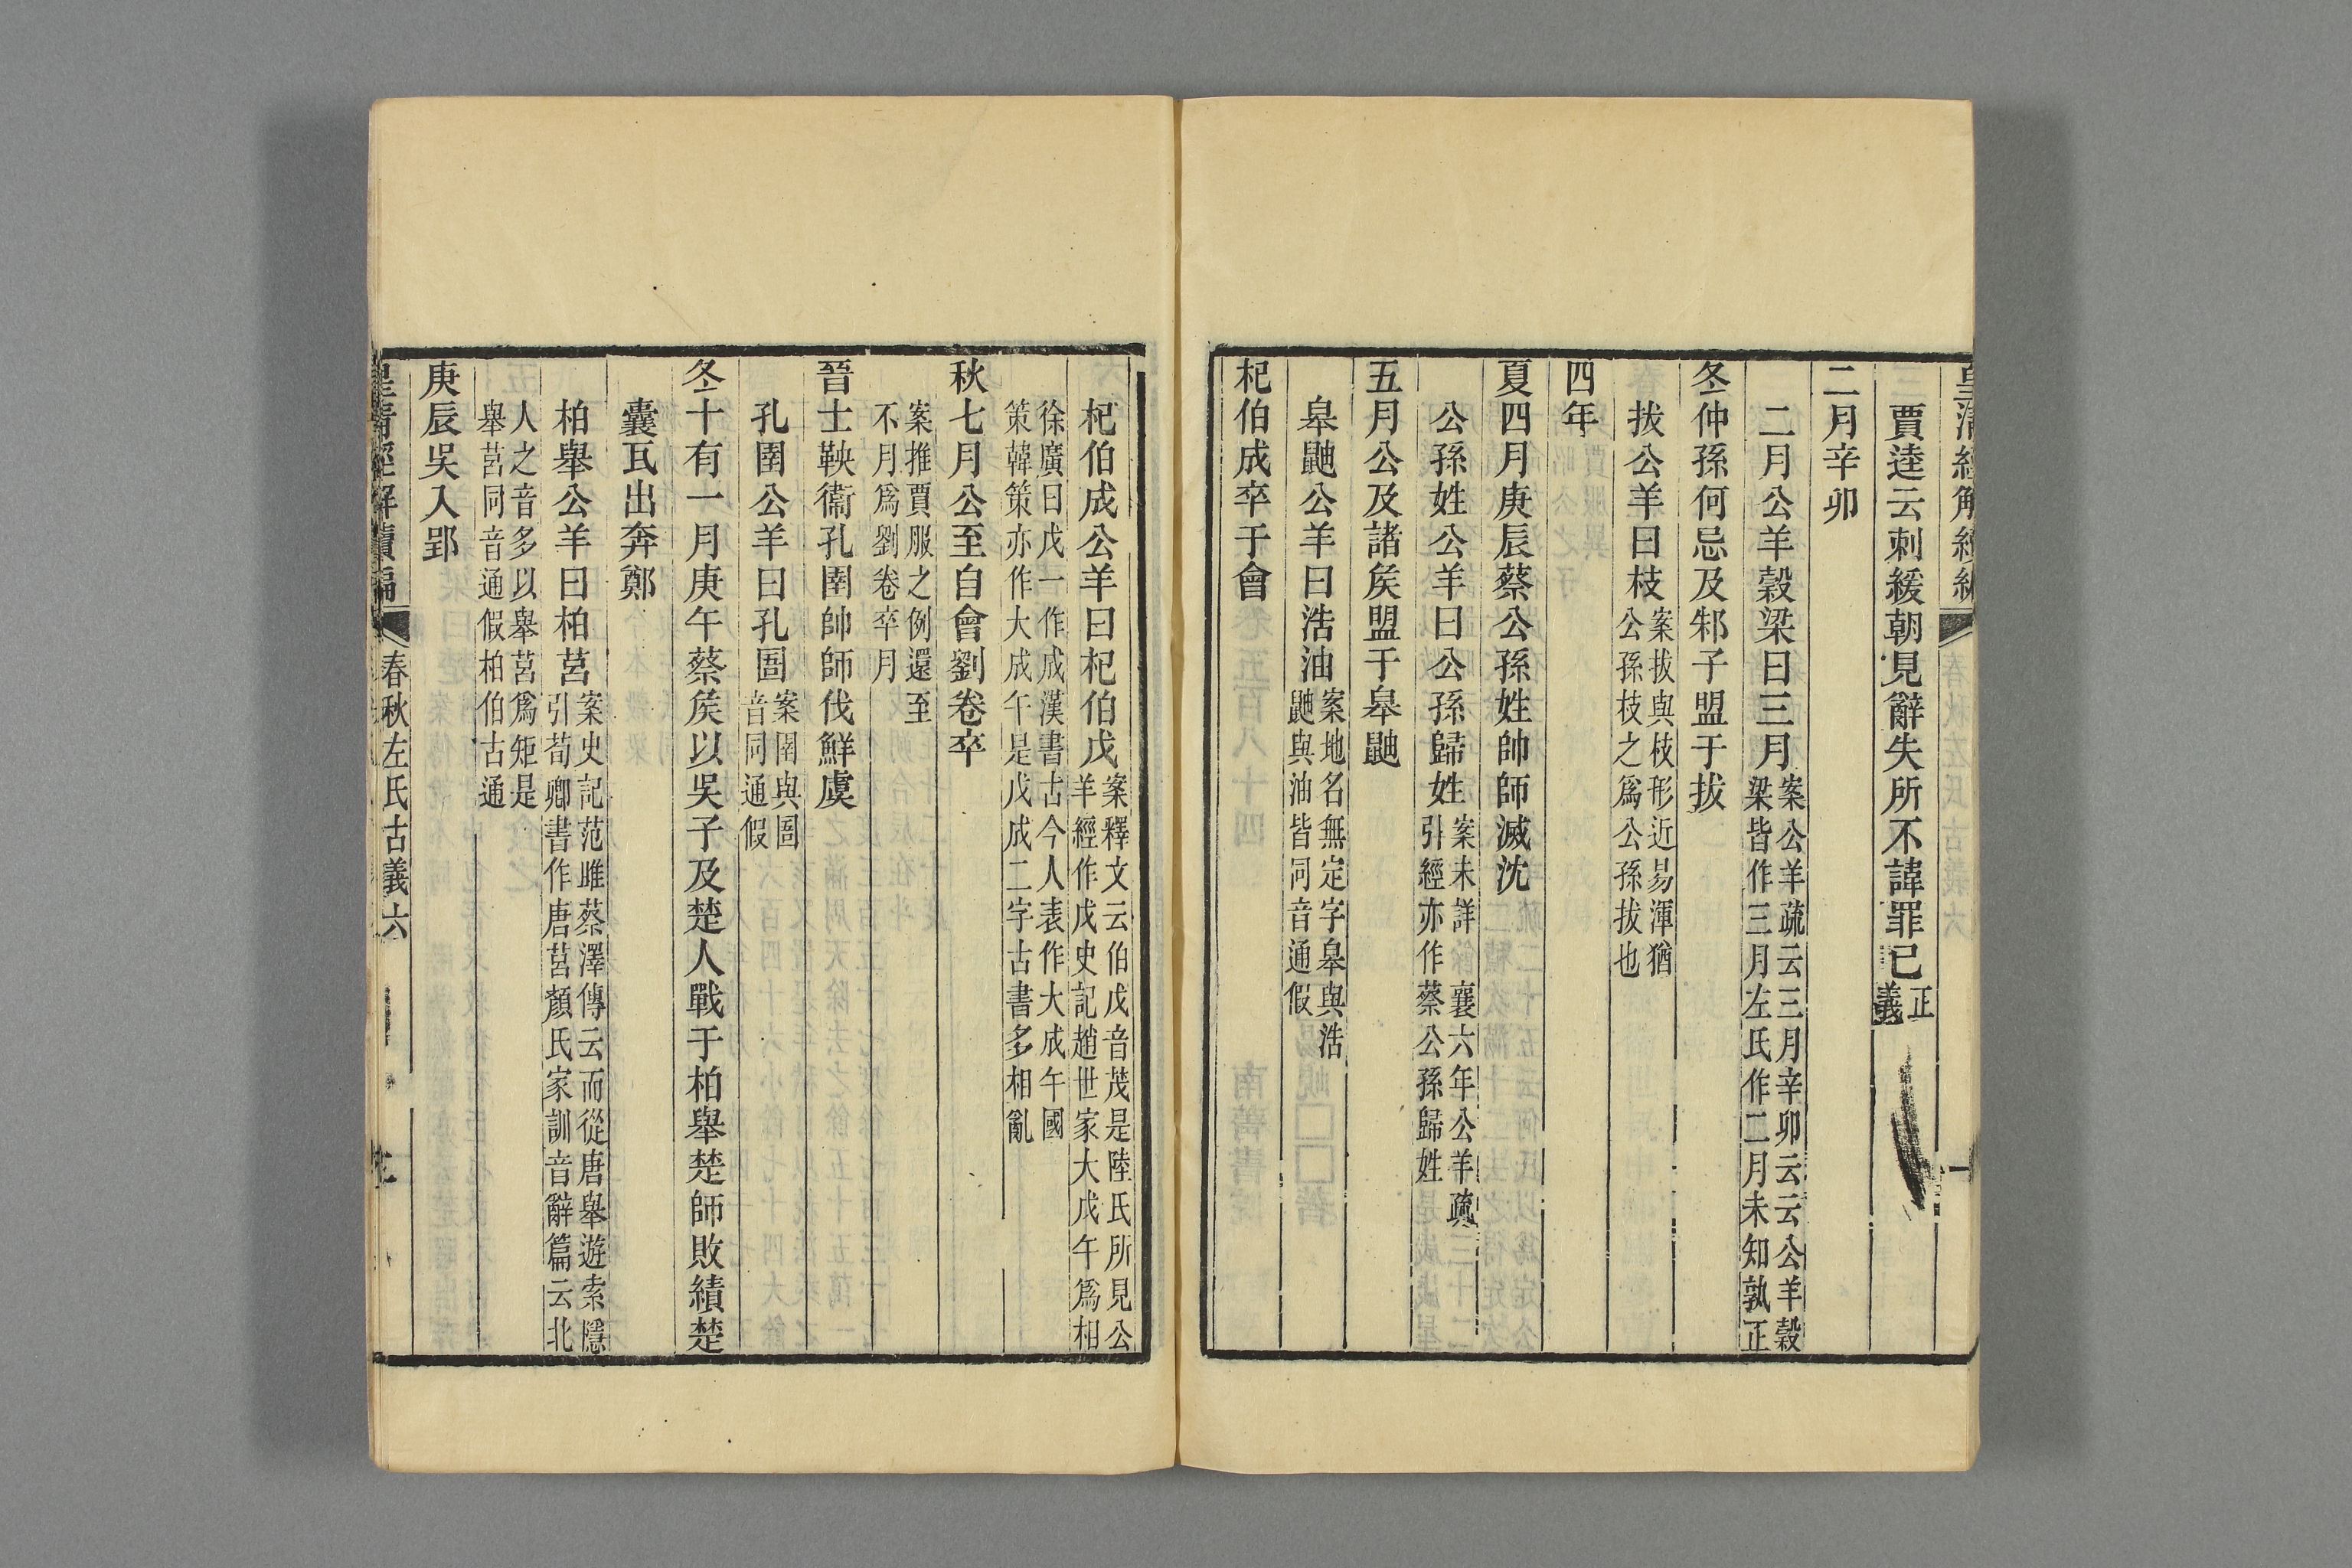 皇清經解續編
賈逵云刺緩朝見辭失所不諱罪已正義
二月辛卯
二月公羊穀梁曰三月案公羊疏云三月辛卯云云公羊穀梁皆作三月左氏作二月未知孰正
冬仲孫何忌及邾子盟于拔
拔公羊曰枝案拔與枝形近易渾猶公孫枝之爲公孫拔也
四年
夏四月庚辰蔡公孫姓帥師滅沈
公孫姓公羊曰公孫歸姓案未詳 襄六年公羊疏引經亦作蔡公孫歸姓
五月公及諸矦盟于皋鼬
皋鼬公羊曰浩油案地名無定字皋與浩鼬與油皆同音通假
杞伯成卒于會
杞伯成公羊曰杞伯戊案釋文云伯戊音茂是陸氏所見公羊經作戊史記趙世家大戊午爲相
徐廣曰戊一作成漢書古今人表作大成午國策韓策亦作大成午是戊成二字古書多相亂
秋七月公至自會劉卷卒
案推賈服之例還至不月爲劉卷卒月
晉士鞅衞孔圉帥師伐鮮虞
孔圉公羊曰孔圄案圉與圄音同通假
冬十有一月庚午蔡矦以吳子及楚人戰于柏舉楚師敗績楚
囊瓦出奔鄭
柏舉公羊曰柏莒案史記范雎蔡澤傳云而從唐舉遊索隱引荀卿書作唐莒顏氏家訓音辭篇云北
人之音多以舉莒爲矩是舉莒同音通假柏伯古通
庚辰吳入郢
皇清經解續編 春秋左氏古義六